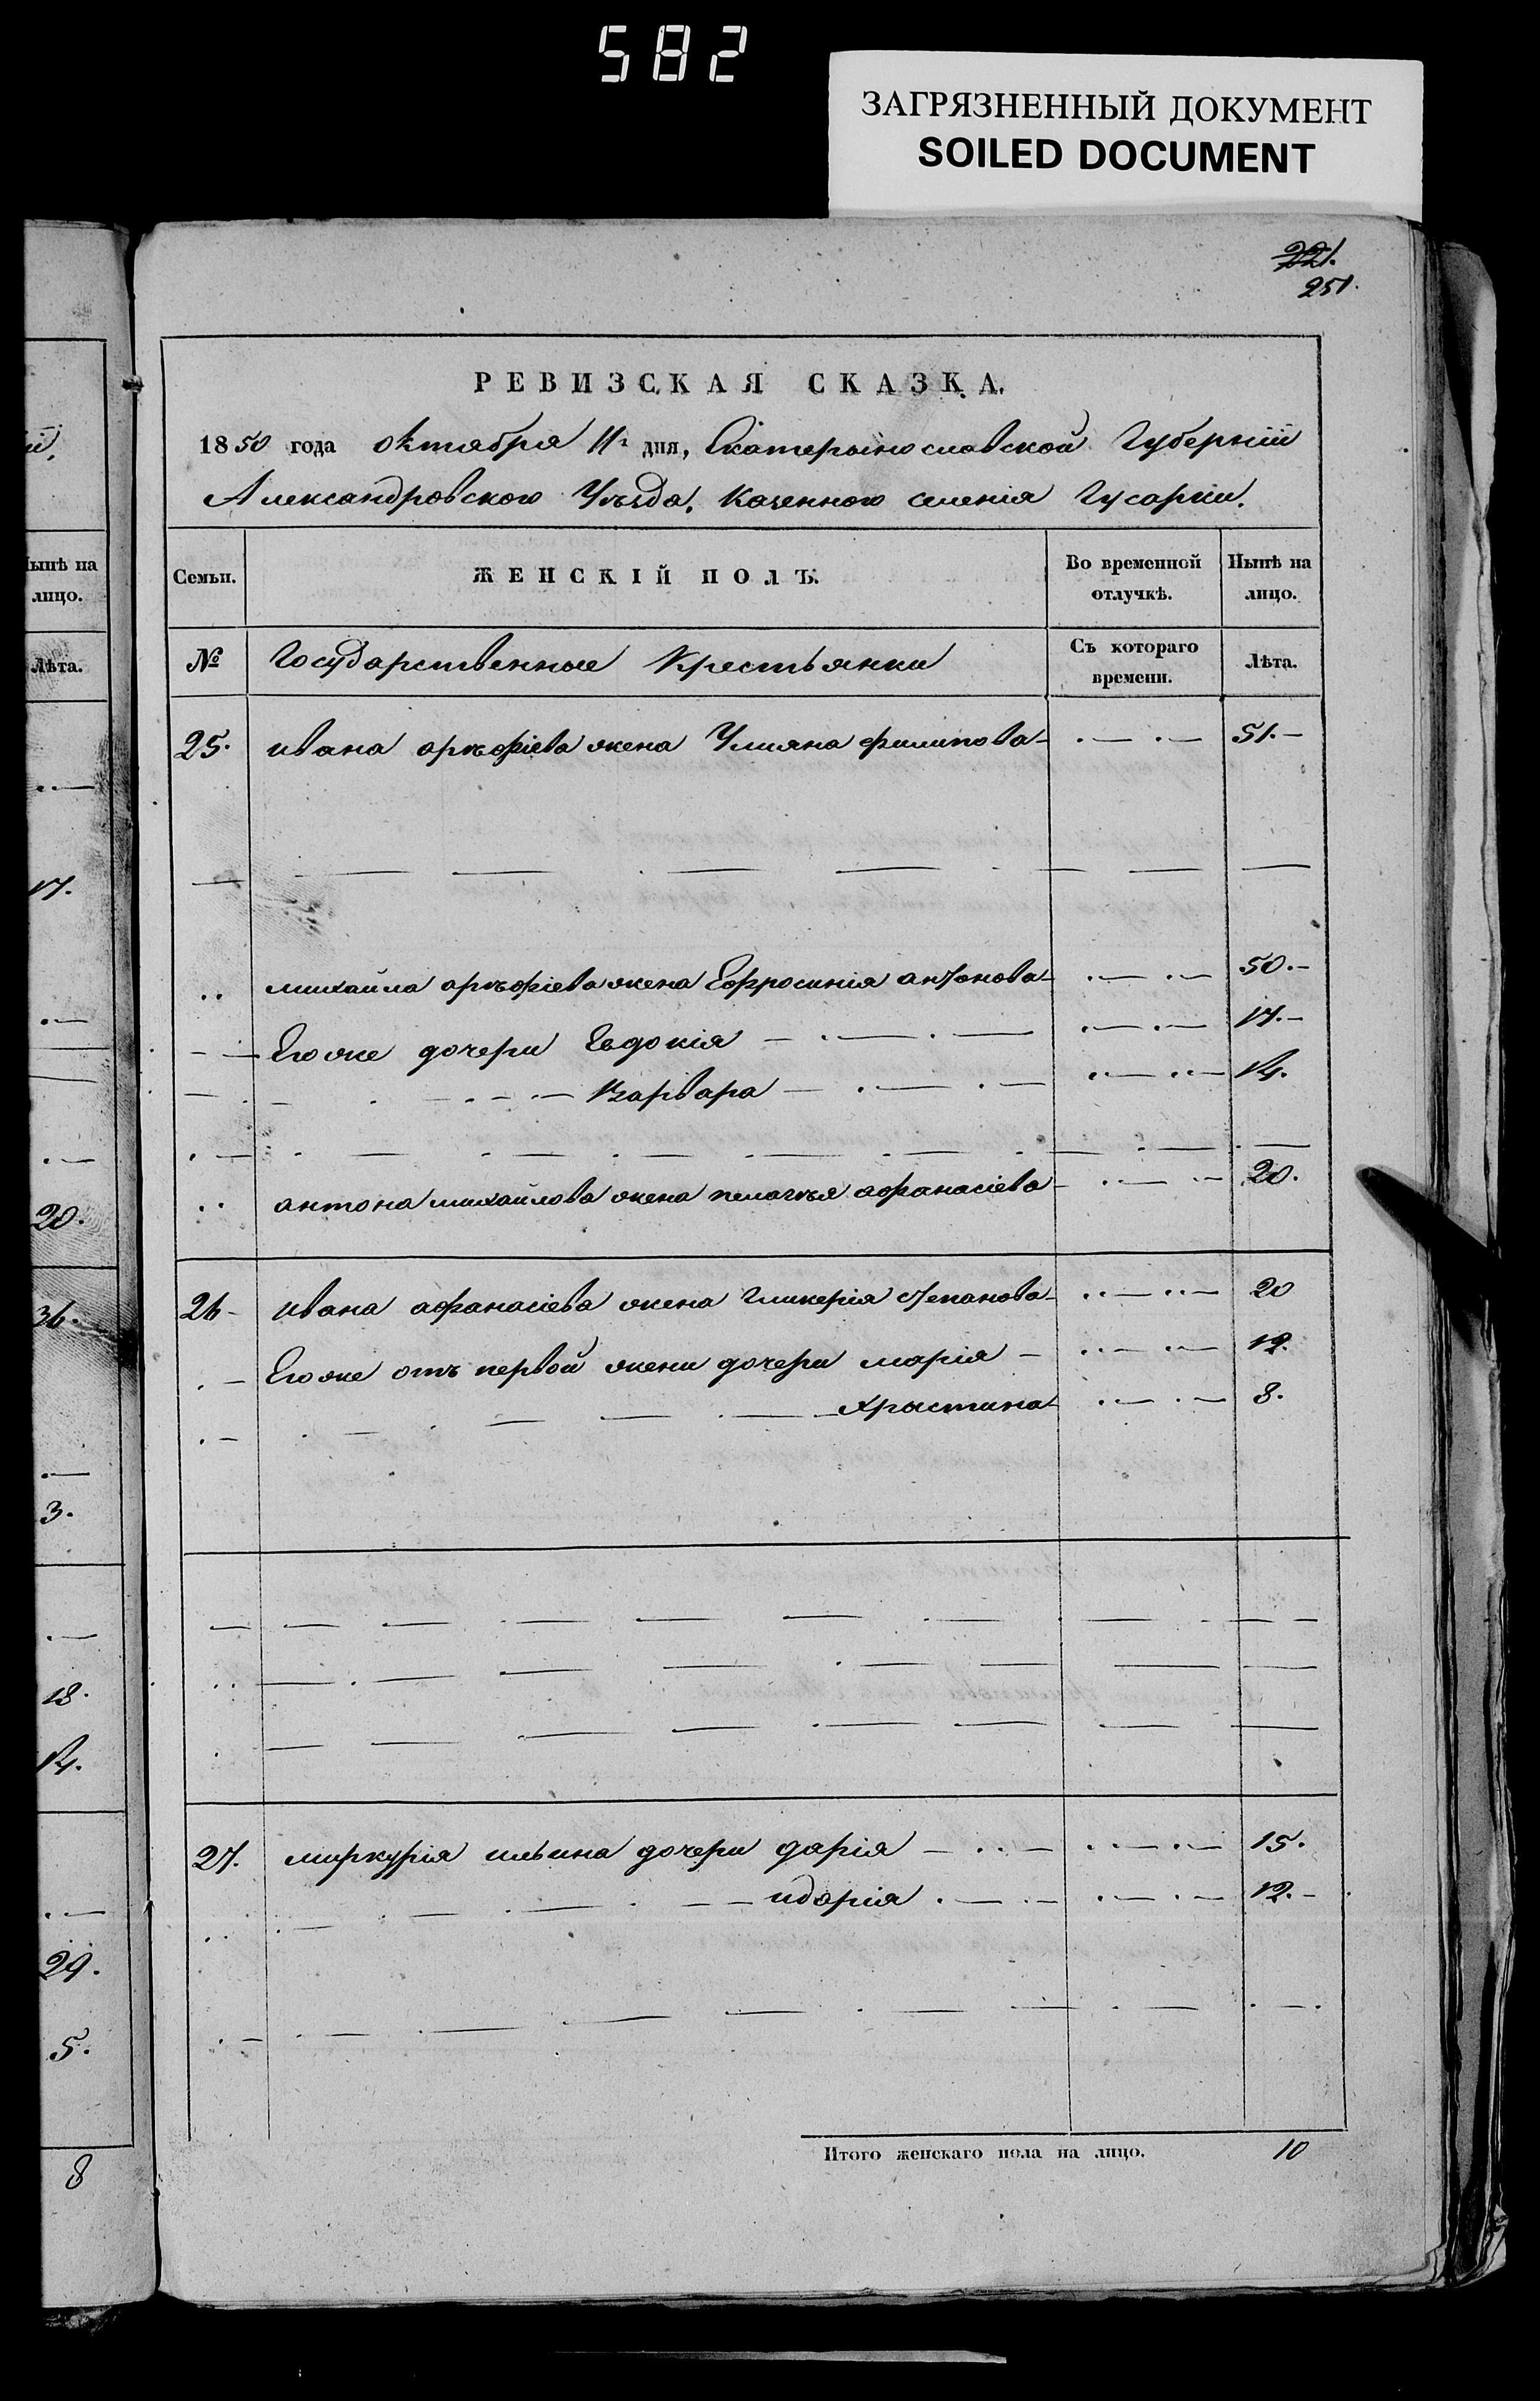 582
ЗАГРЯЗНЕННЫЙ ДОКУМЕНТ
SOILED DOCUMENT
221.
251.
РЕВИЗСКАЯ СКАЗКА.
1850 года октября 11г дня, Екатерынославской Губернiи
Александровского Уѣзда, Казенного селенiя Гусарки.
Семьи. ЖЕНСКIЙ ПОЛЪ. Во временной отлучкѣ. Нынѣ на лицо.
№ Государственные Крестьянки Съ котораго времени. Лѣта.
25. ивана арѣфiева жена Улияна филипова 51.
михаила арѣфiева жена Ефросинiя антонова 50.
Его же дочери Евдокiя 17.
Варвара 14.
антона михайлова жена пелагѣя афанасiева 20.
26 ивана афанасiева жена Гликерiя степанова 20
Его же отъ первой жени дочери марiя 12.
Христина 8.
27. миркурiя ильина дочери дарiя 15.
идарiя 12.
Итого женскаго пола на лицо. 10
Нынѣ на
лицо.
Лѣта.
17.
20.
36.
3.
18.
14.
29.
5.
8